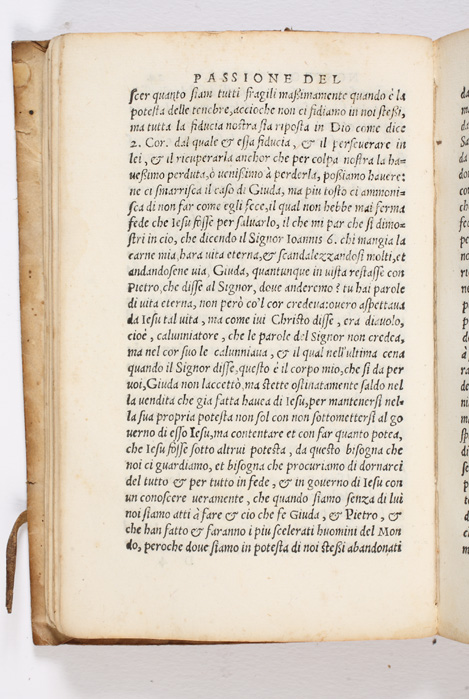 PASSIONE DEL
scer quanto siam tutti fragili maßimamente quando è la
potesta delle tenebre, accioche non ci fidiamo in noi steßi,
ma tutta la fiducia nostra sia riposta in Dio come dice
2. Cor. dal quale & essa fiducia, & il perseuerare in
lei, & il ricuperarla anchor che per colpa nostra la ha-
ueßimo perduta, ò uenißimo à perderla, poßiamo hauere:
ne ci smarrisca il caso di Giuda, ma piu tosto ci ammoni=
sca di non far come egli fece, il qual non hebbe mai ferma
fede che Iesu fosse per saluarlo, il che mi par che si dimo=
stri in cio, che dicendo il Signor Ioannis 6. chi mangia la
carne mia, hara uita eterna, & scandalezzandosi molti, et
andandosene uia, Giuda, quantunque in uista restasse con
Pietro, che disse al Signor, doue anderemo? tu hai parole
di uita eterna, non però co'l cor credeua: ouero aspettaua
da Iesu tal uita, ma come iui Christo disse, era diauolo,
cioè, calunniatore, che le parole del Signor non credea,
ma nel cor suo le calunniaua, & il qual nell'ultima cena
quando il Signor disse, questo è il corpo mio, che si da per
uoi, Giuda non l'accettò, ma stette ostinatamente saldo nel
la uendita che gia fatta hauea di Iesu, per mantenersi nel=
la sua propria potesta non sol con non sottomettersi al go
uerno di esso Iesu, ma contentare et con far quanto potea,
che Iesu fosse sotto altrui potesta, da questo bisogna che
noi ci guardiamo, et bisogna che procuriamo di dornarci
del tutto & per tutto in fede, & in gouerno di Iesu con
un conoscere ueramente, che quando siamo senza di lui
noi siamo atti à fare & cio che fe Giuda, & Pietro, &
che han fatto & faranno i piu scelerati huomini del Mon
do, peroche doue siamo in potesta di noi steßi abandonati